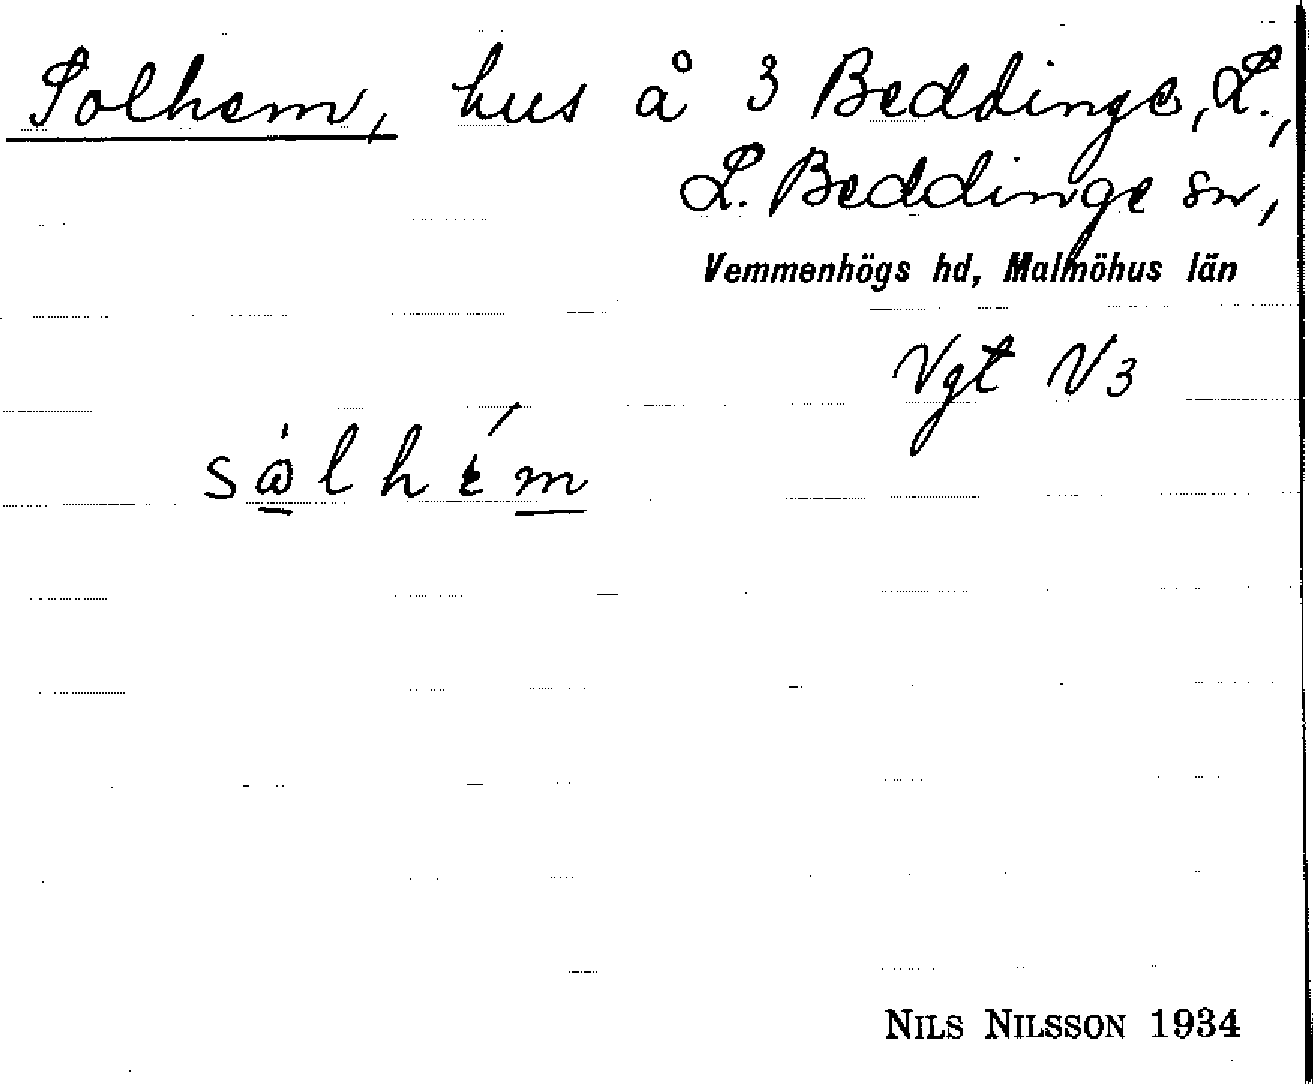 Solhem, hus å 3 Beddinge, L.,
L. Beddinge sn,
Vemmenhögs hd, Malmöhus län
Vgt V3
NILS NILSSON 1934